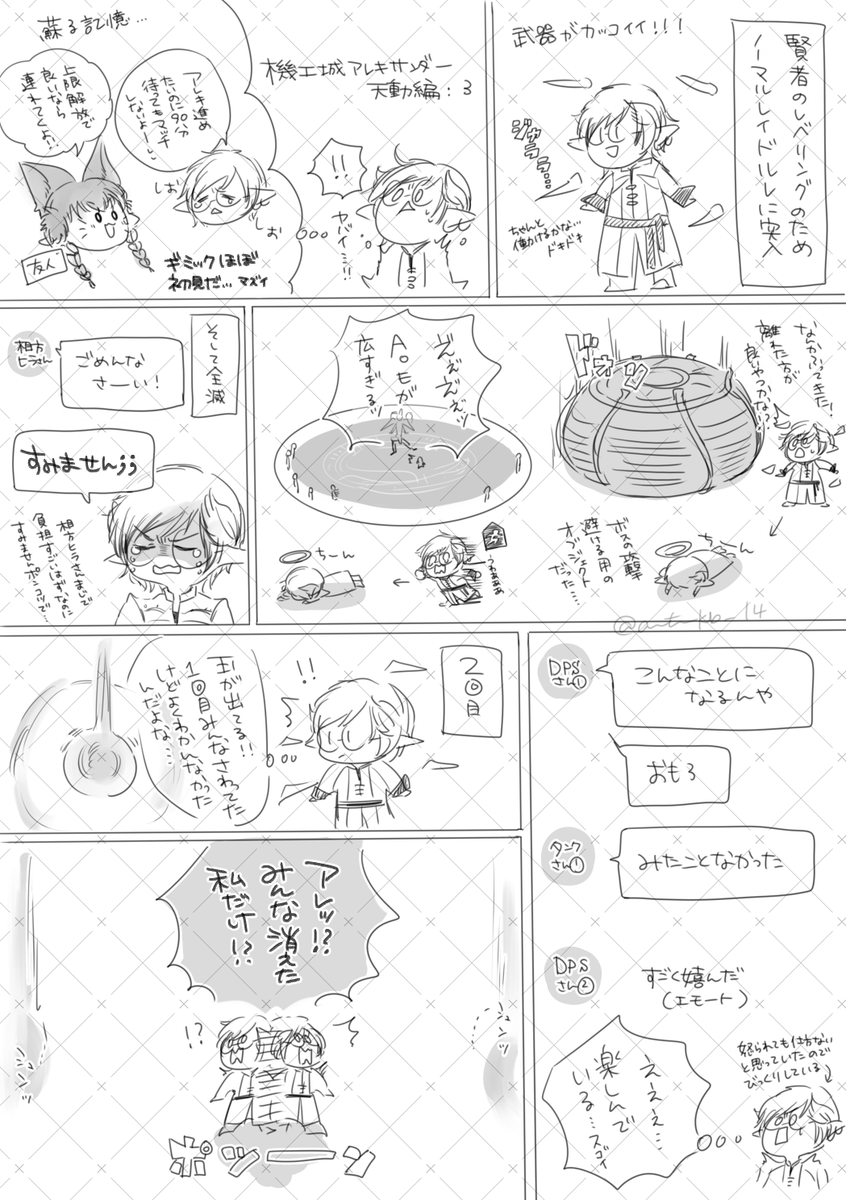 賢者のレベリングのため
ノーマルレイドルレに突入
武器がカッコイイ!!!
ジャラララ…
ちゃんと
働けるかな…
ドキドキ
機工城アレキサンダー
天動編:3
!!
ヤバイ…!!
蘇る記憶…
アレキ進め
たいのに90分
待ってもマッチ
しないよー…
しお
お
上限解放で
良いなら
連れてくよ!
友人
ギミックほぼ
初見だ…マズイ
なんかふってきた!
離れた方が
良いやつかな?
ドォン
ボスの攻撃
避ける用の
オブジェクト
だった…
ちーん
どぇぇぇッ
AoEが
広すぎるッ
うわぁああ
ちーん
そして全滅
相方
ヒラさん
ごめんな
さーい!
すみません;;
相方ヒラさんまじで
負担すごいはずなのに
すみませんポンコツで…
@a_t_kb_14
2回目
!!
玉が出てる!!
1回目みんなさわってた
けどよくわかんなかった
んだよな…
アレッ!?
みんな消えた
私だけ!?
!?
シュンッ
ポツーーン
DPS
さん①
こんなことに
なるんや
おもろ
タンク
さん①
みたことなかった
DPS
さん②
すごく喜んだ
(エモート)
ええぇ…
楽しんで
いる…スゴイ
怒られても仕方ない
と思っていたので
びっくりしている